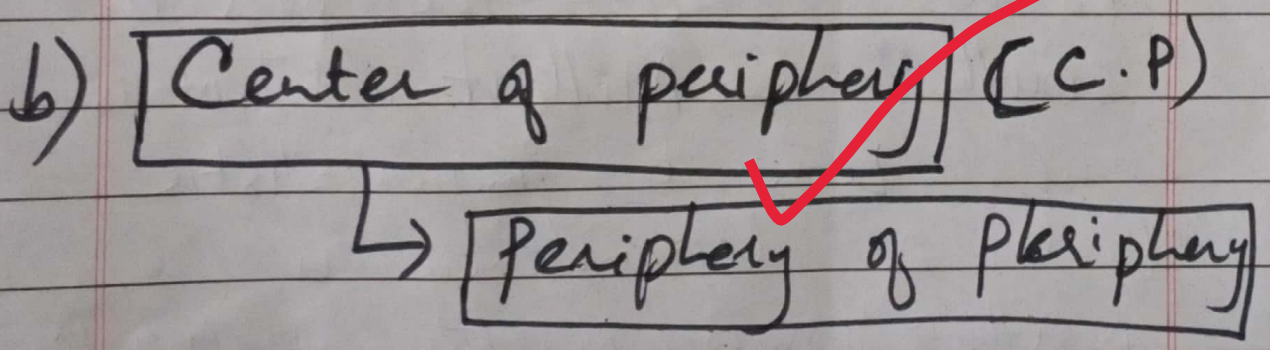 b) Center of periphery (C.P)
Periphery of Periphery